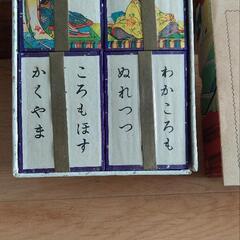 わかころも
ぬれつつ
ころもほす
かくやま